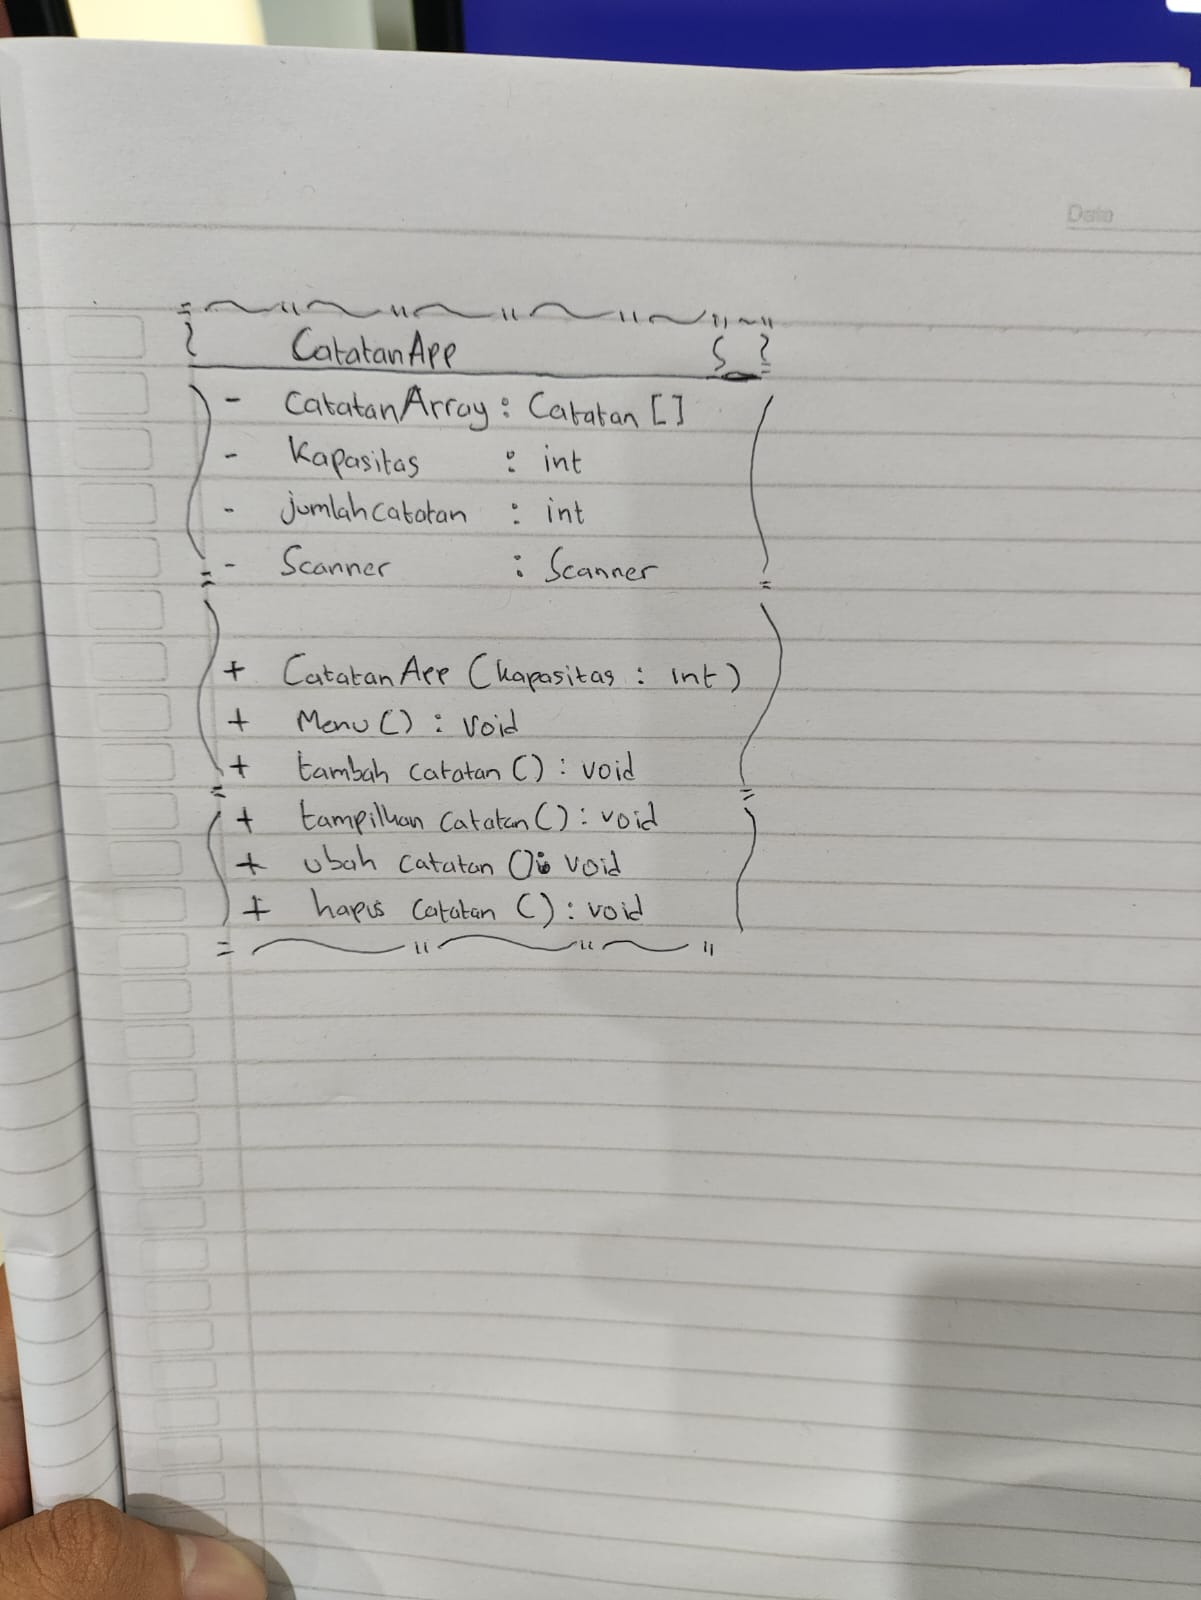 Date
CatatanApp
- CatatanArray : Catatan []
- Kapasitas : int
- jumlahcatatan : int
- Scanner : Scanner
+ CatatanApp (kapasitas : int)
+ Menu () : void
+ tambah catatan () : void
+ tampilkan catatan () : void
+ ubah catatan () : void
+ hapus catatan () : void